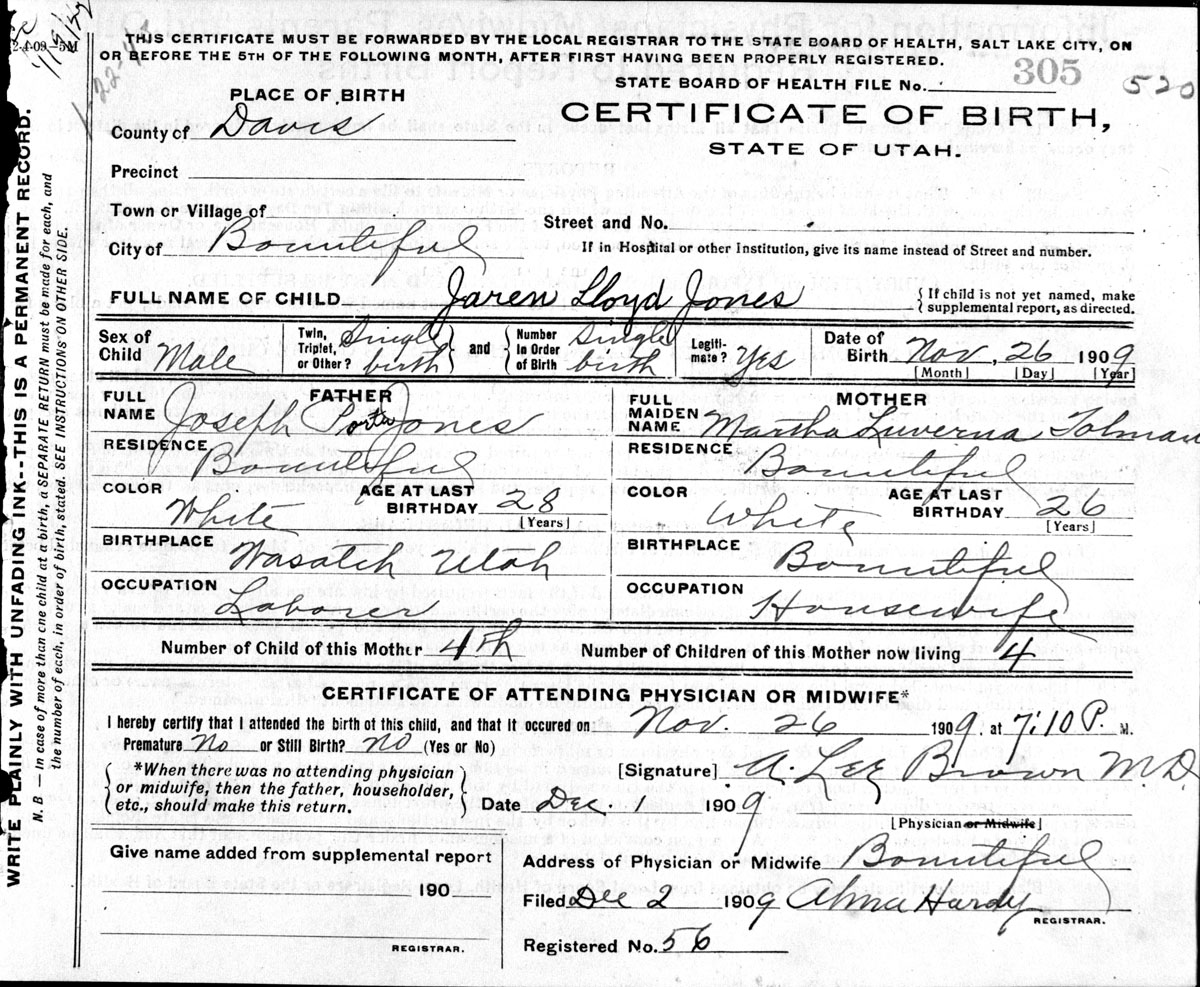 2-4-09-5M
THIS CERTIFICATE MUST BE FORWARDED BY THE LOCAL REGISTRAR TO THE STATE BOARD OF HEALTH, SALT LAKE CITY, ON
OR BEFORE THE 5TH OF THE FOLLOWING MONTH, AFTER FIRST HAVING BEEN PROPERLY REGISTERED.
305 520
STATE BOARD OF HEALTH FILE No.
PLACE OF BIRTH
CERTIFICATE OF BIRTH,
STATE OF UTAH.
County of Davis
Precinct
Town or Village of
Street and No.
City of Bountiful
If in Hospital or other Institution, give its name instead of Street and number.
FULL NAME OF CHILD Jaren Lloyd Jones { If child is not yet named, make supplemental report, as directed.
Sex of Child Male Twin, Triplet, or Other? Single birth } and { Number in Order of Birth Single birth Legiti-mate? Yes Date of Birth Nov. 26 1909
[Month] [Day] [Year]
FATHER MOTHER
FULL NAME Joseph Porter Jones FULL MAIDEN NAME Martha Luverna Tolman
RESIDENCE Bountiful RESIDENCE Bountiful
COLOR White AGE AT LAST BIRTHDAY 28 [Years] COLOR White AGE AT LAST BIRTHDAY 26 [Years]
BIRTHPLACE Wasatch Utah BIRTHPLACE Bountiful
OCCUPATION Laborer OCCUPATION Housewife
Number of Child of this Mother 4th Number of Children of this Mother now living 4
CERTIFICATE OF ATTENDING PHYSICIAN OR MIDWIFE*
I hereby certify that I attended the birth of this child, and that it occured on Nov. 26 1909, at 7:10 P. M.
Premature No or Still Birth? no (Yes or No)
{ *When there was no attending physician
or midwife, then the father, householder,
etc., should make this return. }
[Signature] A. Lee Brown M D.
Date Dec. 1 1909
[Physician or Midwife]
Give name added from supplemental report
190
REGISTRAR.
Address of Physician or Midwife Bountiful
Filed Dec 2 1909 Alma Hardy
REGISTRAR.
Registered No. 56
WRITE PLAINLY WITH UNFADING INK--THIS IS A PERMANENT RECORD.
N. B — In case of more than one child at a birth, a SEPARATE RETURN must be made for each, and
the number of each, in order of birth, stated. SEE INSTRUCTIONS ON OTHER SIDE.